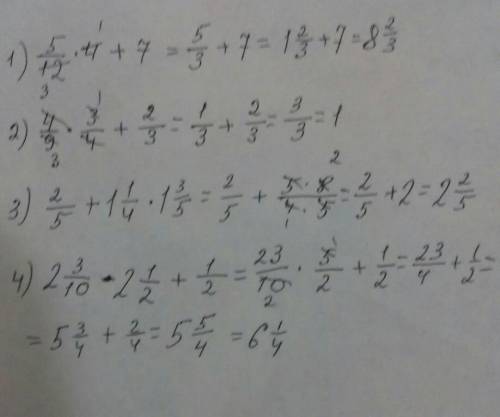 1) 5/12 · 4 + 7 = 5/3 + 7 = 1 2/3 + 7 = 8 2/3
2) 4/9 · 3/4 + 2/3 = 1/3 + 2/3 = 3/3 = 1
3) 2/5 + 1 1/4 · 1 3/5 = 2/5 + 5·8/4·5 = 2/5 + 2 = 2 2/5
4) 2 3/10 · 2 1/2 + 1/2 = 23/10 · 5/2 + 1/2 = 23/4 + 1/2 =
= 5 3/4 + 2/4 = 5 5/4 = 6 1/4